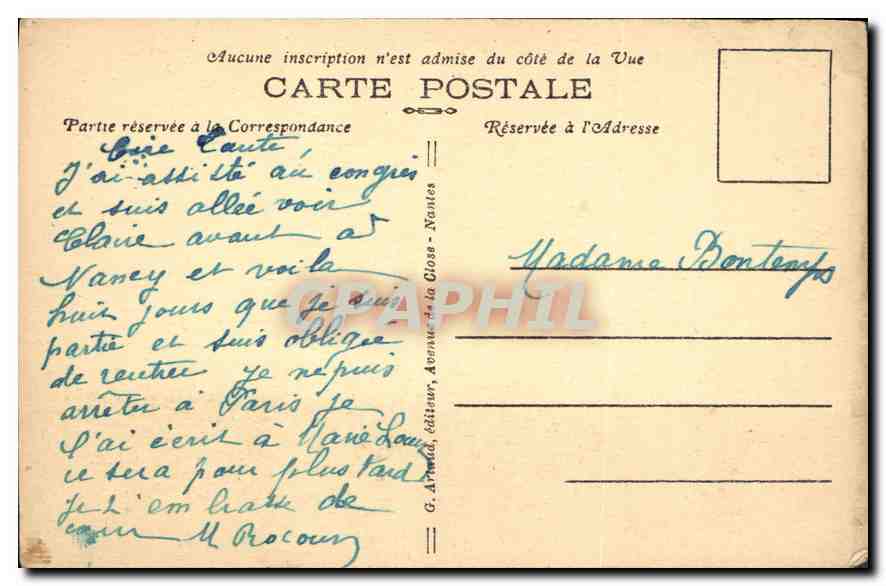 Aucune inscription n'est admise du côté de la Vue
CARTE POSTALE
Partie réservée à la Correspondance
Réservée à l'Adresse
Chère Tante,
J'ai assisté au congrès
et suis allée voir
Claire avant a
Nancy et voila
huit jours que je suis
partie et suis obligée
de rentrer je ne puis
arrêter à Paris je
l'ai écrit à Marie Louise
ce sera pour plus tard
je t'embrasse de
coeur M
G. Artaud, éditeur, Avenue de la Close - Nantes
Madame Bontemps
CPAPHIL